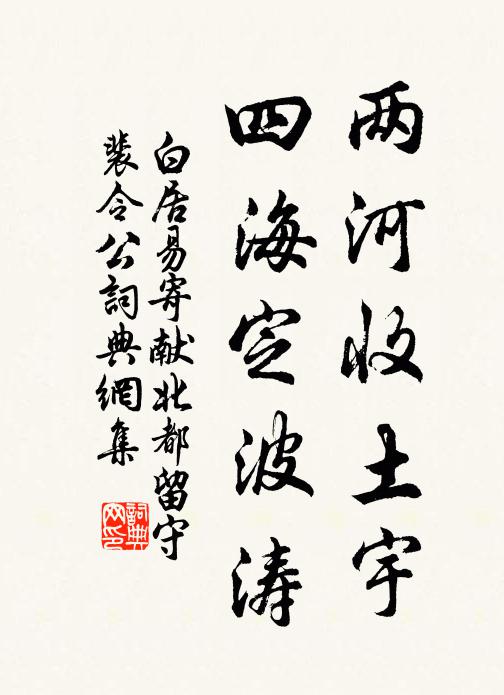 两河收土宇
四海定波涛
白居易寄献北都留守
裴令公詞典網集
詞典网印